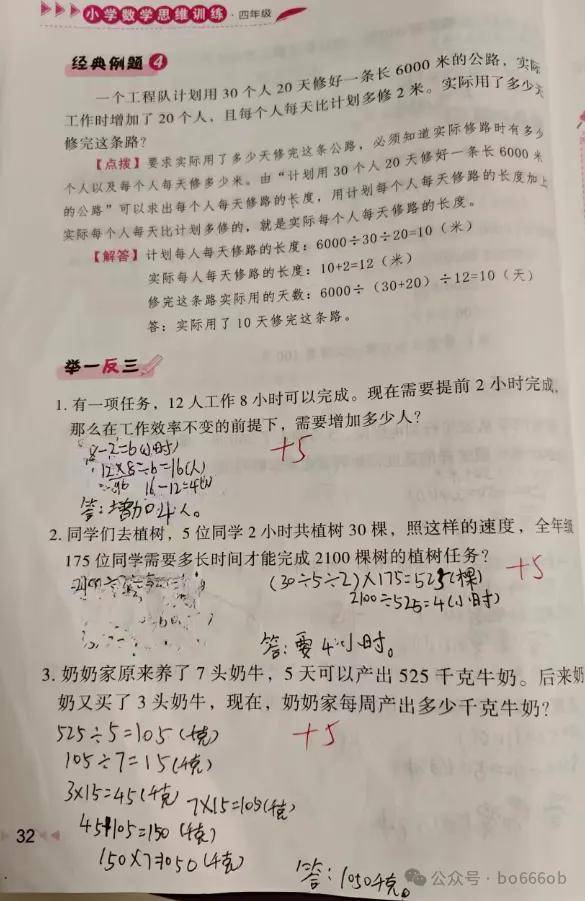 小学数学思维训练·四年级
经典例题 4
一个工程队计划用 30 个人 20 天修好一条长 6000 米的公路，实际
工作时增加了 20 个人，且每个人每天比计划多修 2 米。实际用了多少天
修完这条路？
【点拨】要求实际用了多少天修完这条公路，必须知道实际修路时有多少
个人以及每个人每天修多少米。由“计划用 30 个人 20 天修好一条长 6000 米
的公路”可以求出每个人每天修路的长度，用计划每个人每天修路的长度加上
实际每个人每天比计划多修的，就是实际每个人每天修路的长度。
【解答】计划每人每天修路的长度：6000÷30÷20=10（米）
实际每人每天修路的长度：10+2=12（米）
修完这条路实际用的天数：6000÷（30+20）÷12=10（天）
答：实际用了 10 天修完这条路。
举一反三
1. 有一项任务，12 人工作 8 小时可以完成。现在需要提前 2 小时完成，
那么在工作效率不变的前提下，需要增加多少人？
8-2=6(小时)
+5
12×8÷6=16(人)
16-12=4(人)
答：增加4人。
2. 同学们去植树，5 位同学 2 小时共植树 30 棵，照这样的速度，全年级
175 位同学需要多长时间才能完成 2100 棵树的植树任务？
(30÷5÷2)×175=525(棵)
+5
2100÷525=4(小时)
答：要4小时。
3. 奶奶家原来养了 7 头奶牛，5 天可以产出 525 千克牛奶。后来奶
奶又买了 3 头奶牛，现在，奶奶家每周产出多少千克牛奶？
525÷5=105(千克)
+5
105÷7=15(千克)
3×15=45(千克) 7×15=105(千克)
45+105=150(千克)
150×7=1050(千克)
答：1050千克。
32
公众号·bo666ob